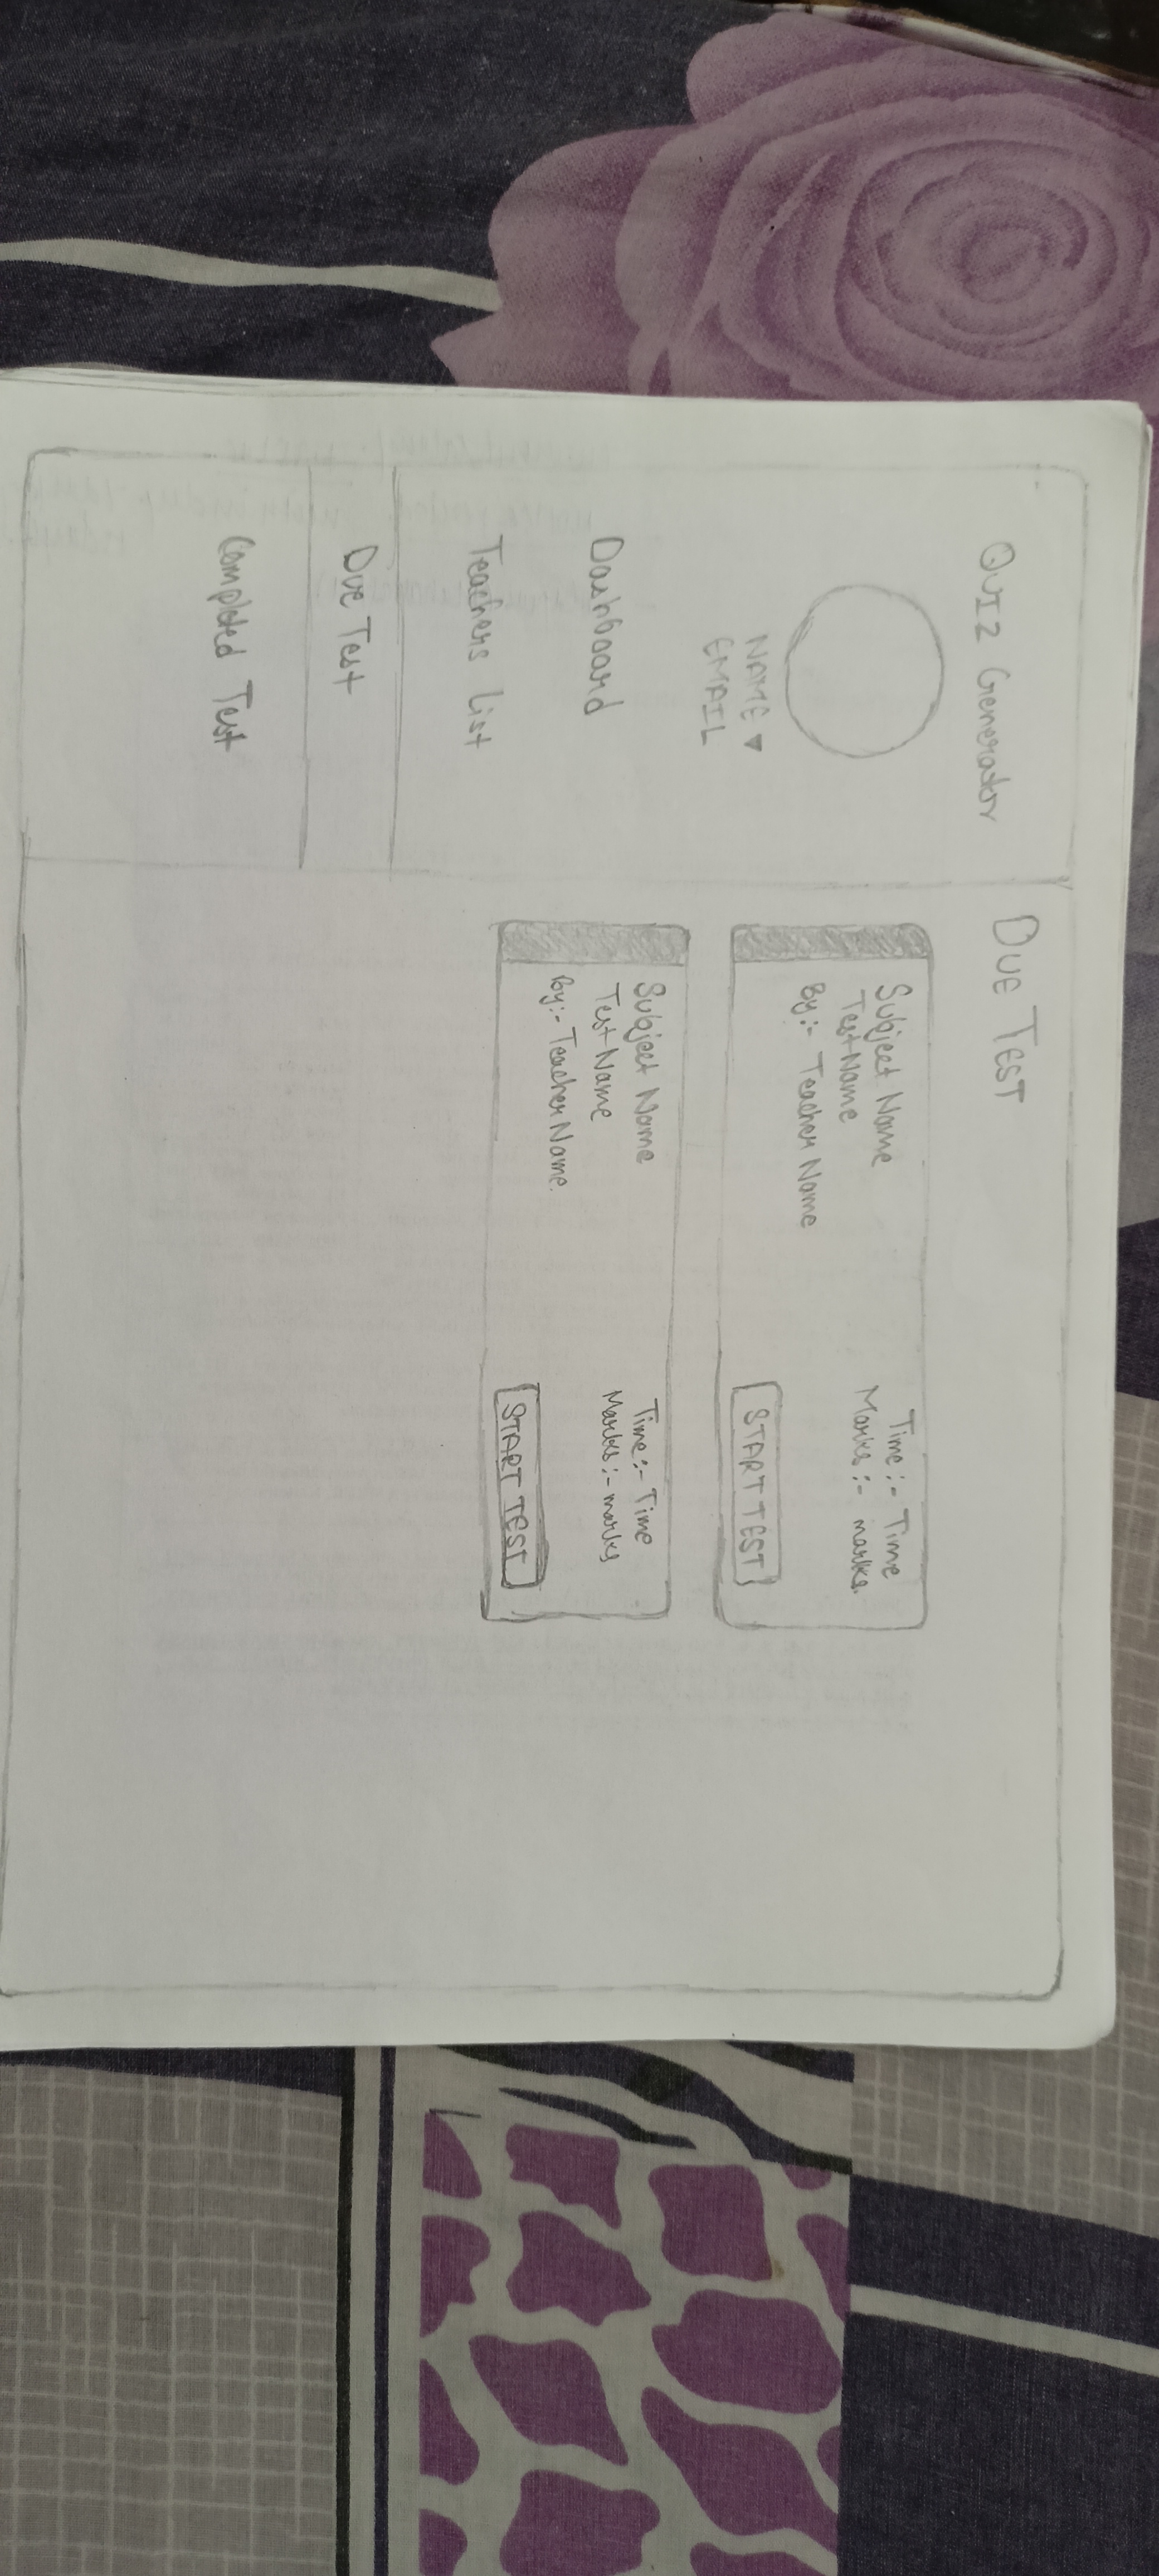 QUIZ Generator
NAME ▼
EMAIL
Dashboard
Teachers List
Due Test
Completed Test
DUE TEST
Subject Name
Test Name
By:- Teacher Name
Time:- Time
Marks:- marks.
START TEST
Subject Name
Test Name
By:- Teacher Name.
Time:- Time
Marks:- marks
START TEST